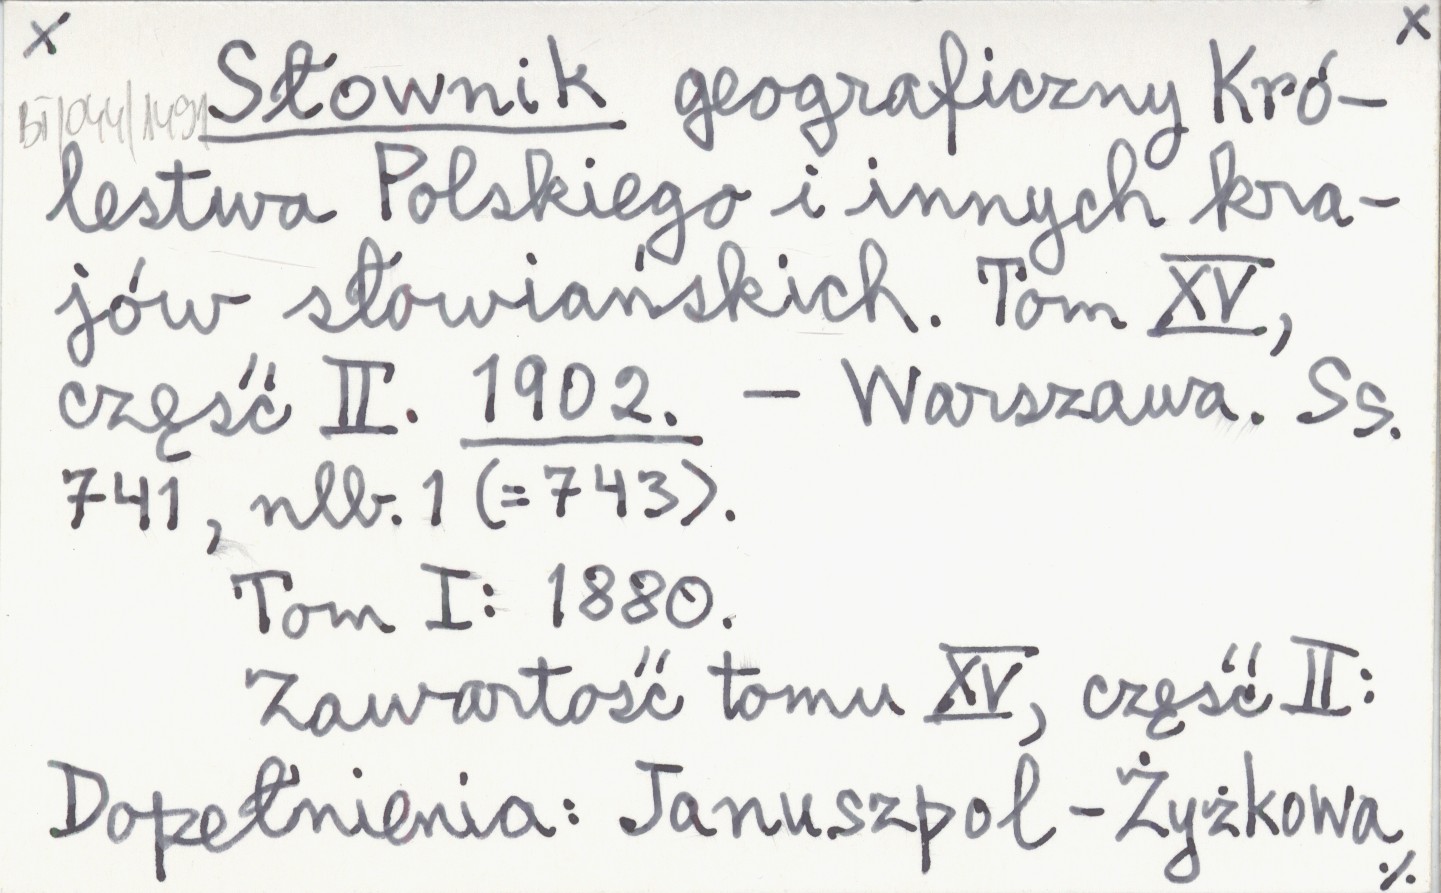 x x
BT/044/1491
Słownik geograficzny Kró-
lestwa Polskiego i innych kra-
jów słowiańskich. Tom XV,
część II. 1902. – Warszawa. Ss.
741, nlb. 1 (=743).
Tom I: 1880.
Zawartość tomu XV, część II:
Dopełnienia: Januszpol – Żyżkowa
./.